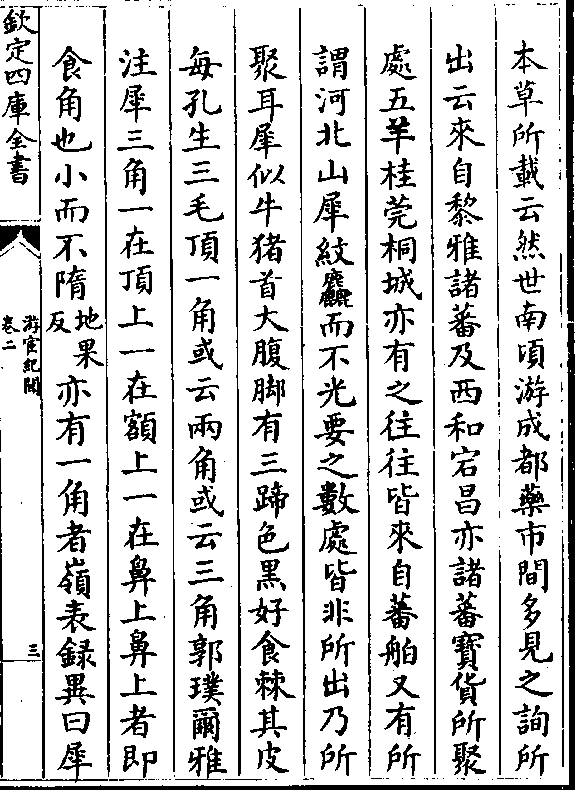 本草所載云然世南頃游成都藥市間多見之詢所
出云來自黎雅諸蕃及西和宕昌亦諸蕃寶貨所聚
處五羊桂莞桐城亦有之往往皆來自蕃舶又有所
謂河北山犀紋麤而不光要之數處皆非所出乃所
聚耳犀似牛猪首大腹脚有三蹄色黑好食棘其皮
每孔生三毛頂一角或云兩角或云三角郭璞爾雅
注犀三角一在頂上一在額上一在鼻上鼻上者即
食角也小而不隋地果反亦有一角者嶺表録異曰犀
欽定四庫全書
游宦紀聞
卷二
三